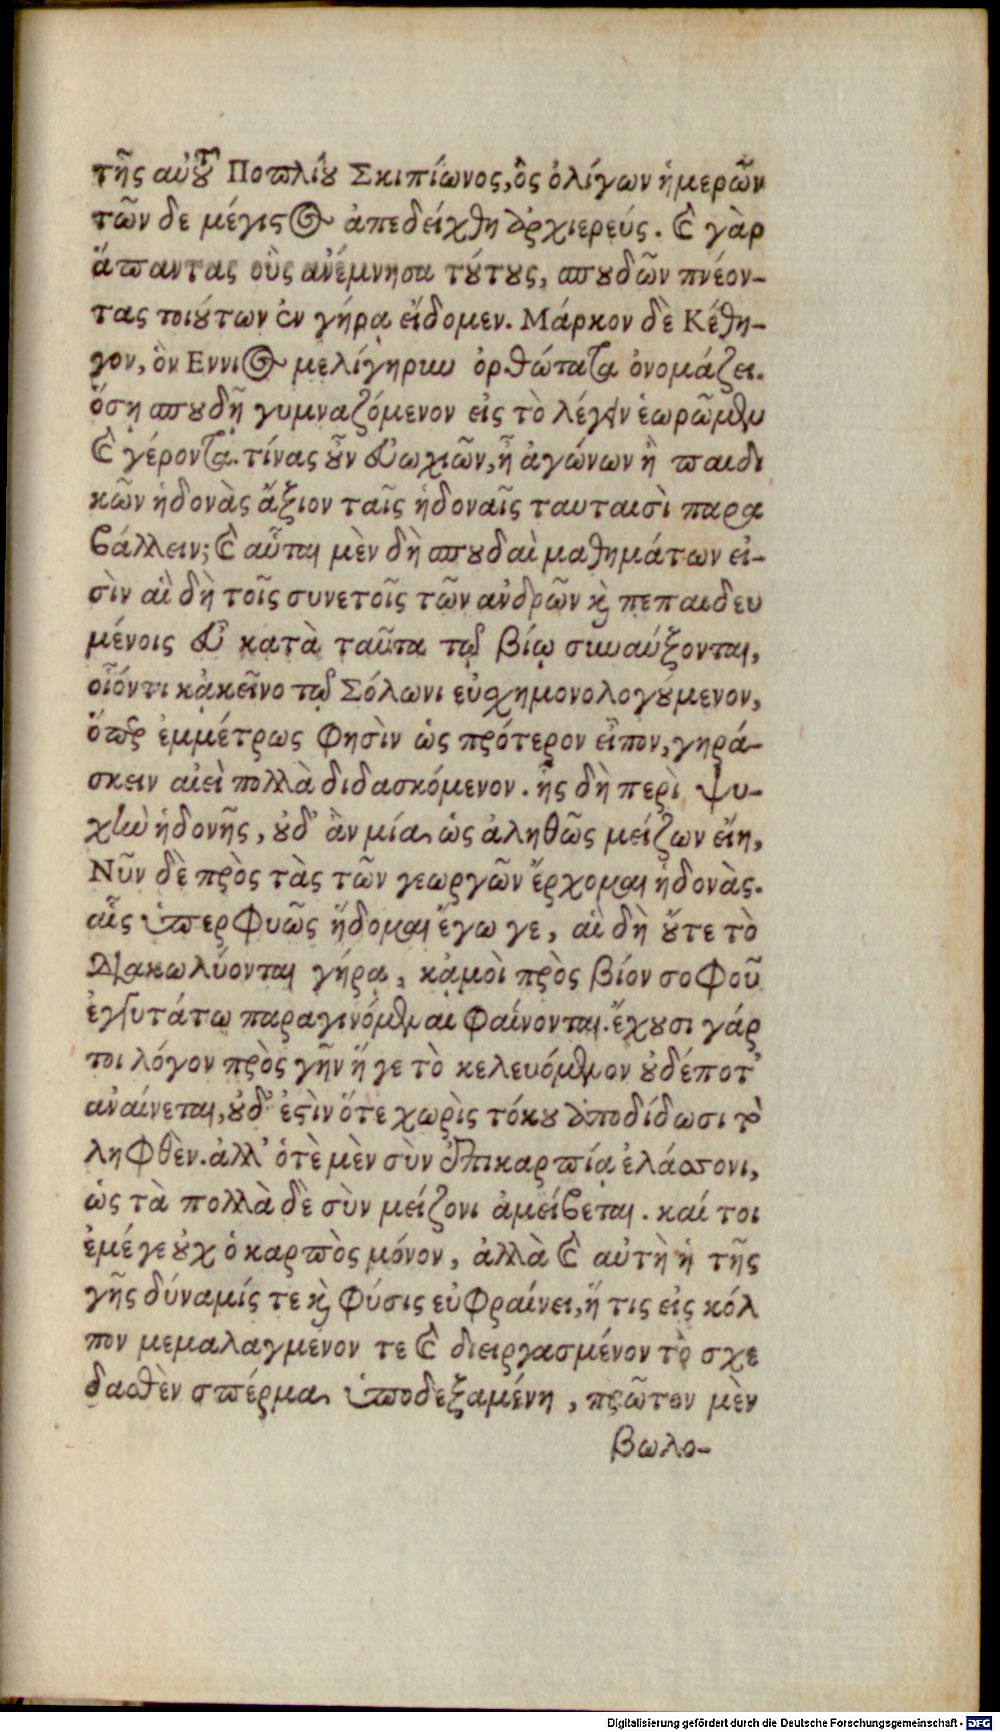 τῆς αὐτοῦ Ποπλίου Σκιπίωνος, ὃς ὀλίγων ἡμερῶν
τῶν δε μέγιστος ἀπεδείχθη ἀρχιερεύς. καὶ γὰρ
ἅπαντας οὓς ἀνέμνησα τούτους, σπουδῶν πνέον-
τας τοιούτων ἐν γήρᾳ εἴδομεν. Μάρκον δὲ Κέθη-
γον, ὃν Εννιος μελίγηρυν ὀρθώτατα ὀνομάζει.
ὅσῃ σπουδῇ γυμναζόμενον εἰς τὸ λέγειν ἑωρῶμεν
καὶ γέροντα. τίνας οὖν εὐωχιῶν, ἢ ἀγώνων ἢ παιδι
κῶν ἡδονὰς ἄξιον ταῖς ἡδοναῖς ταυταισὶ παρα
βάλλειν; καὶ αὗται μὲν δὴ σπουδαὶ μαθημάτων εἰ-
σὶν αἳ δὴ τοῖς συνετοῖς τῶν ἀνδρῶν καὶ πεπαιδευ
μένοις εὖ κατὰ ταῦτα τῷ βίῳ συναύξονται,
οἷόντι κἀκεῖνο τῷ Σόλωνι εὐσχημονολογούμενον,
ὅπερ ἐμμέτρως φησὶν ὡς πρότερον εἶπον, γηρά-
σκειν αἰεὶ πολλὰ διδασκόμενον. ἧς δὴ περὶ ψυ-
χὴν ἡδονῆς, οὐδ' ἂν μία ὡς ἀληθῶς μείζων εἴη,
Νῦν δὲ πρὸς τὰς τῶν γεωργῶν ἔρχομαι ἡδονὰς.
αἷς ὑπερφυῶς ἥδομαι ἔγωγε, αἳ δὴ οὔτε τὸ
διακωλύονται γήρᾳ, κἀμοὶ πρὸς βίον σοφοῦ
ἐγγυτάτω παραγινόμεναι φαίνονται. ἔχουσι γάρ
τοι λόγον πρὸς γῆν ἥγε τὸ κελευόμενον οὐδέποτ'
ἀναίνεται, οὐδ' ἐστὶν ὅτε χωρὶς τόκου ἀποδίδωσι τὸ
ληφθὲν. ἀλλ' ὁτὲ μὲν σὺν ἐπικαρπίᾳ ἐλάσσονι,
ὡς τὰ πολλὰ δὲ σὺν μείζονι ἀμείβεται. καί τοι
ἐμέγε οὐχ ὁ καρπὸς μόνον, ἀλλὰ καὶ αὐτὴ ἡ τῆς
γῆς δύναμίς τε καὶ φύσις εὐφραίνει, ἥ τις εἰς κόλ
πον μεμαλαγμένον τε καὶ διειργασμένον τὸ σχε
δασθὲν σπέρμα ὑποδεξαμένη, πρῶτον μὲν
βωλο-
Digitalisierung gefördert durch die Deutsche Forschungsgemeinschaft - DFG